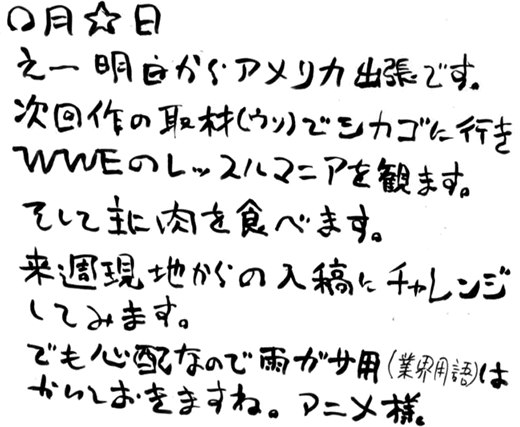 〇月☆日
えー明日からアメリカ出張です。
次回作の取材(ウソ)でシカゴに行き
WWEのレッスルマニアを観ます。
そして主に肉を食べます。
来週現地からの入稿にチャレンジ
してみます。
でも心配なので雨ガサ用(業界用語)は
かいておきますね。アニメ様。